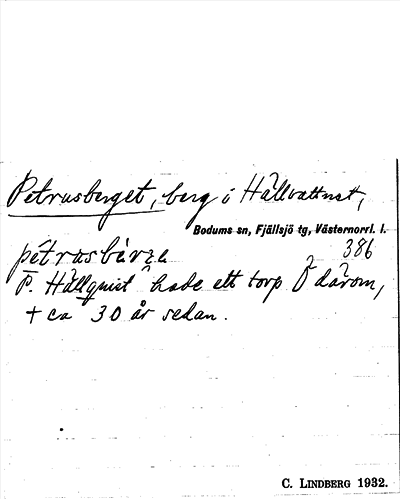 Petrusberget, berg i Hällvattnet,
Bodums sn, Fjällsjö tg, Västernorrl. l.
386
P. Hällquist hade ett torp Ö därom,
+ ca 30 år sedan.
C. LINDBERG 1932.